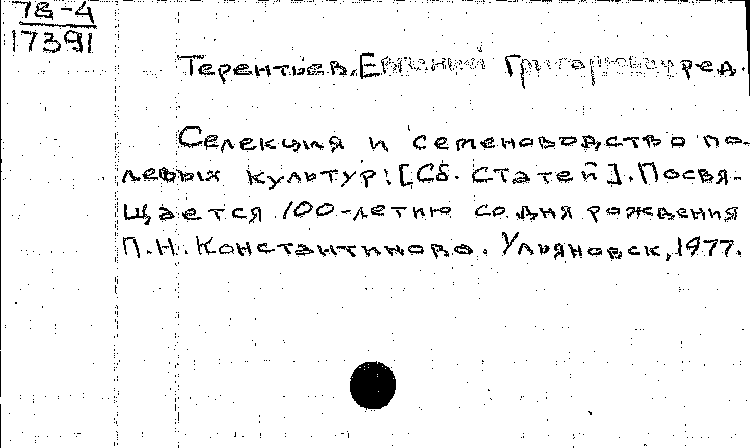 78-4
17391
Терентьев, Евгений Григорьевич ред.
Селекция и семеноводство по-
левых культур: [Сб. статей]. Посвя-
щается 100-летию со дня рождения
П.Н. Константинова. Ульяновск, 1977.